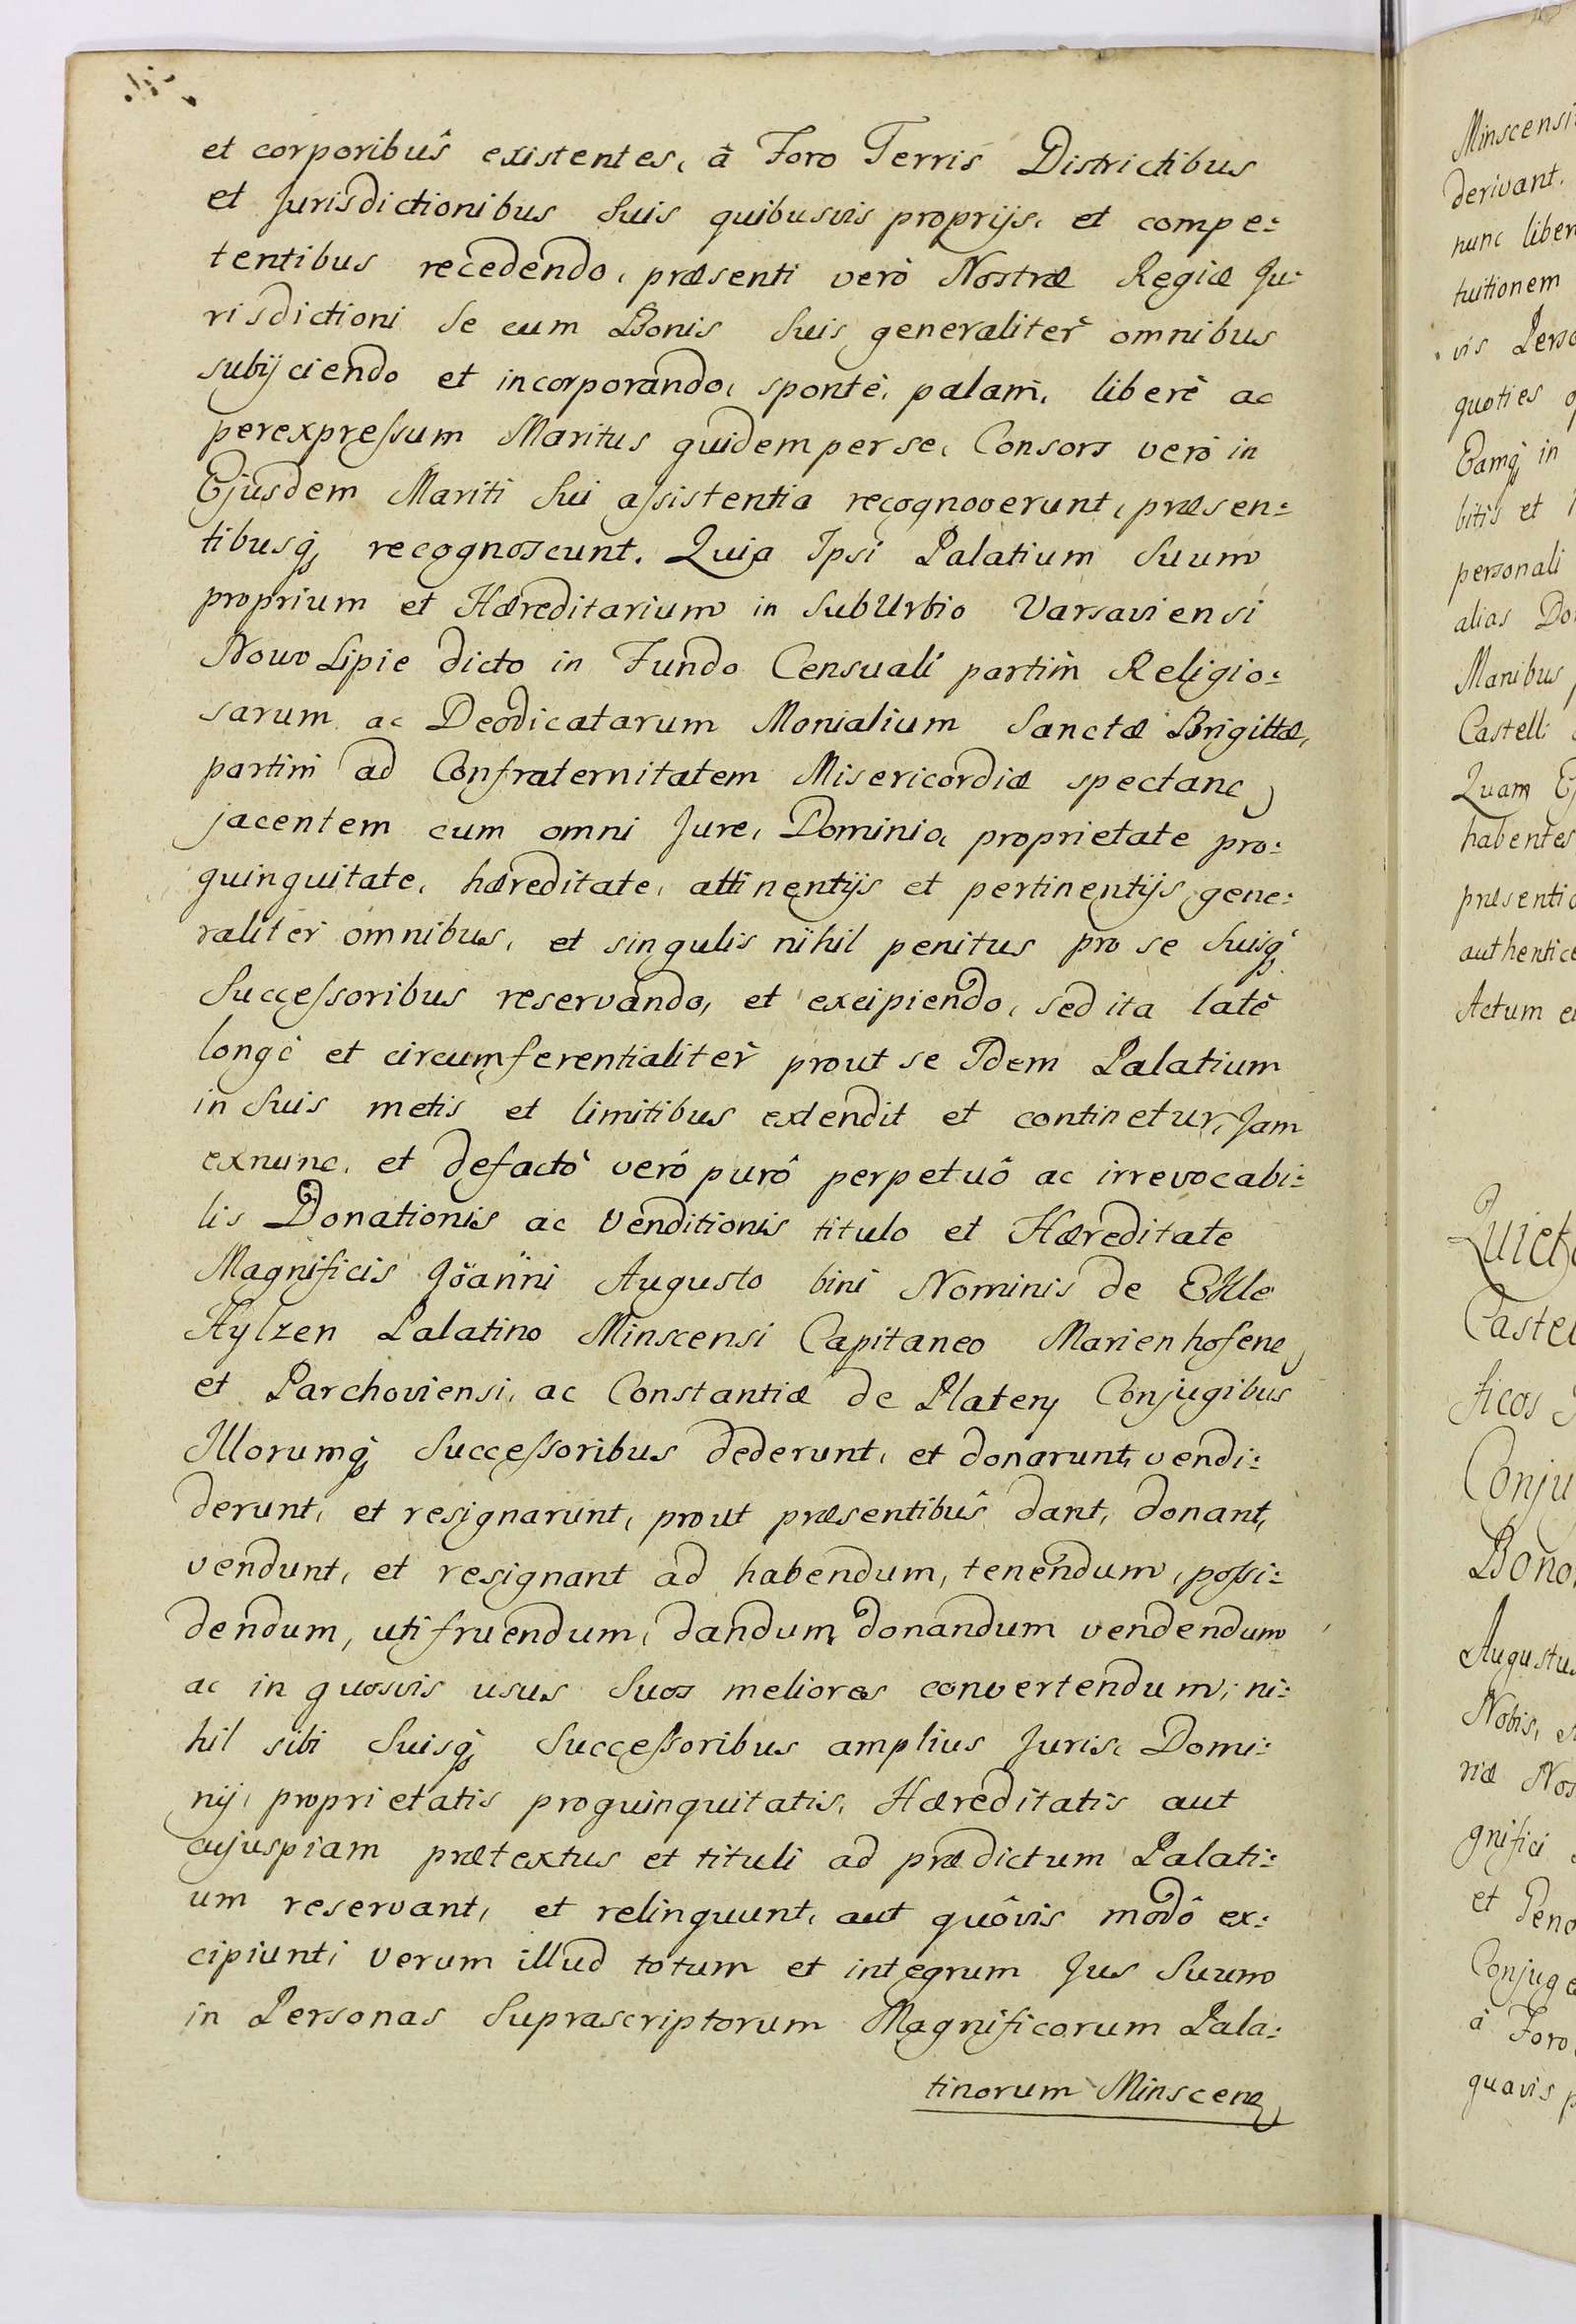 et corporibus existentes, à Foro Terris Districtibus
et Jurisdictionibus Suis quibusvis proprijs, et compe:
tentibus recedendo, præsenti verò Nostræ Regiæ Ju:
risdictioni Se cum Bonis Suis generaliter omnibus
subijciendo et incorporando, spontè, palam, liberè ac
perexpressum Maritus quidem per se, Consors verò in
Ejusdem Mariti Sui assistentia recognoverunt, præsen:
tibusq recognoscunt. Quia Ipsi Palatium Suum
proprium et Hæreditarium in SubUrbio Varsaviensi
Nowo Lipie dicto in Fundo Censuali partim Religio:
sarum ac Deodicatarum Monialium Sanctæ Brigittæ,
partim ad Confraternitatem Misericordiæ spectan
jacentem cum omni Jure, Dominio, proprietate pro:
quinquitate, hæreditate, attinentijs et pertinentijs gene:
raliter omnibus, et singulis nihil penitus pro se Suisq
Successoribus reservando, et excipiendo, sed ita latè
longè et circumferentialiter prout se Idem Palatium
in Suis metis et limitibus extendit et continetur, Jam
exnunc, et defactò verò purô perpetuô ac irrevocabi:
lis Donationis ac Venditionis titulo et Hæreditate
Magnificis Joanni Augusto bini Nominis de Ekle
Hylzen Palatino Minscensi Capitaneo Marienhofen
et Parchoviensi, ac Constantiæ de Platery Conjugibus
Illorumq Successoribus dederunt, et donarunt, vendi:
derunt, et resignarunt, prout præsentibus dant, donant,
vendunt, et resignant ad habendum, tenendum, possi:
dendum, utifruendum, dandum donandum vendendum
ac in quosvis usus Suos meliores convertendum, ni:
hil sibi Suisq Successoribus amplius Juris, Domi:
nij, proprietatis proquinquitatis, Hæreditatis aut
cujuspiam prætextus et tituli ad prædictum Palati:
um reservant, et relinquunt, aut quôvis modô ex:
cipiunt, verum illud totum et integrum Jus Suum
in Personas Suprascriptorum Magnificorum Pala:
tinorum Minscen
Minscensi
derivant.
nunc liber
tuitionem
vis Perso
quoties
Eamq in
bitis et
personali
alias Do
Manibus
Castell
Quam
habentes
præsenti
authentice
Actum
Quiet
Caste
ficos
Conju
Bono
Augustus
Nobis,
riæ Nos
gnifici
et
Conjuge
à Foro
quavis